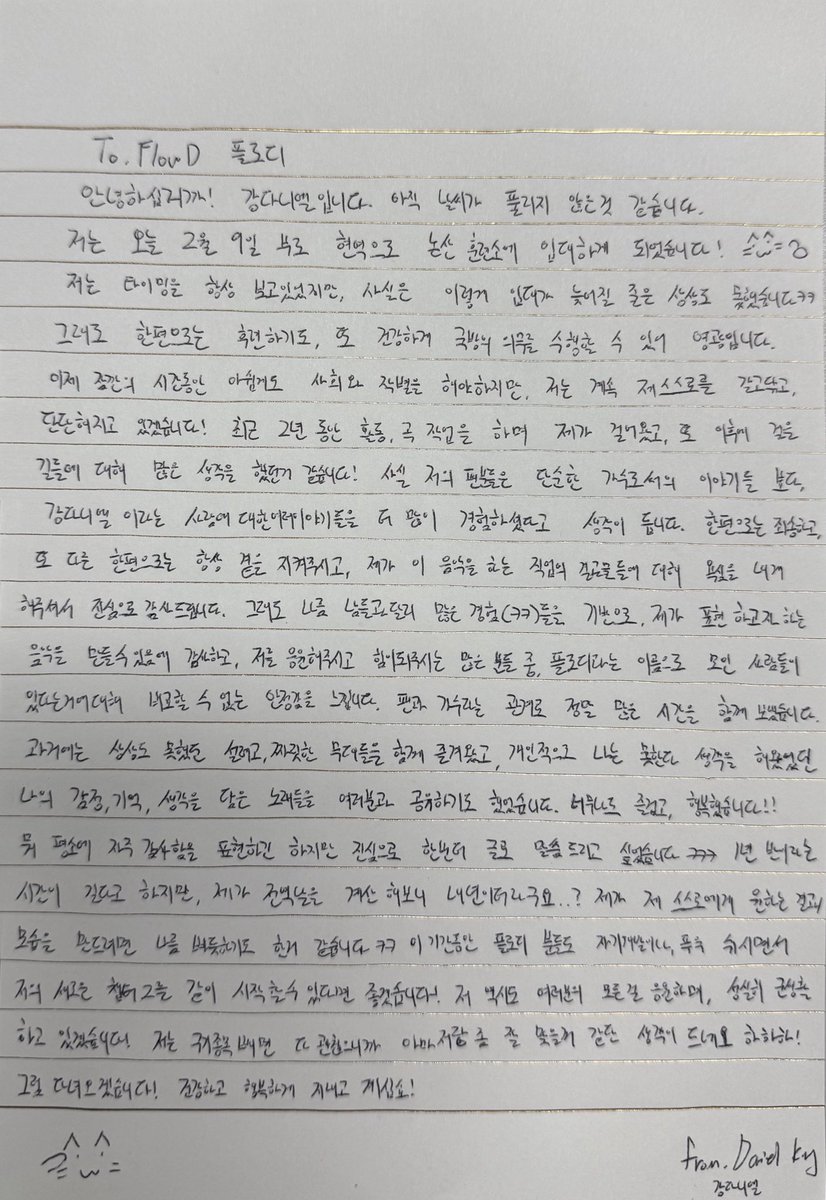 To. FlowD 플로디
안녕하십니까! 강다니엘입니다. 아직 날씨가 풀리지 않은것 같습니다.
저는 오늘 2월 9일 부로 현역으로 논산 훈련소에 입대하게 되었습니다!
저는 타이밍을 항상 보고있었지만, 사실은 이렇게 입대가 늦어질 줄은 상상도 못했습니다ㅋㅋ
그래도 한편으로는 후련하기도, 또 건강하게 국방의 의무를 수행할 수 있어 영광입니다.
이제 잠깐의 시간동안 아쉽게도 사회와 작별을 해야하지만, 저는 계속 제스스로를 갈고닦고,
단단해지고 있겠습니다! 최근 2년 동안 활동, 곡 작업을 하며 제가 걸어왔고, 또 이후에 걸을
길들에 대해 많은 생각을 했던거 같습니다! 사실 저의 팬분들은 단순한 가수로서의 이야기들 보다,
강다니엘 이라는 사람에 대한여러이야기들을 더 많이 경험하셨다고 생각이 듭니다. 한편으로는 죄송하고,
또 다른 한편으로는 항상 곁을 지켜주시고, 제가 이 음악을 하는 직업의 결과물들에 대해 욕심을 내게
해주셔서 진심으로 감사드립니다. 그래도 나름 남들과달리 많은 경험(ㅋㅋ)들을 기반으로, 제가 표현 하고자 하는
음악을 만들수있음에 감사하고, 저를 응원해주시고 힘이되주시는 많은 분들 중, 플로디라는 이름으로 모인 사람들이
있다는거에대해 비교할 수 없는 안정감을 느낍니다. 팬과 가수라는 관계로 정말 많은 시간을 함께 보냈습니다.
과거에는 상상도 못했던 설레고, 짜릿한 무대들을 함께 즐겨왔고, 개인적으로 나는 못한다 생각을 해왔었던
나의 감정, 기억, 생각을 담은 노래들을 여러분과 공유하기도 했었습니다. 너무나도 즐겁고, 행복했습니다!!
뭐 평소에 자주 감사함을 표현하긴 하지만 진심으로 한번더 글로 말씀드리고 싶었습니다 ㅋㅋㅋ 1년 반이라는
시간이 길다고 하지만, 제가 전역날을 계산 해보니 내년이더라구요..? 제가 제 스스로에게 원하는 결과,
모습을 만드려면 나름 빠듯하기도 한거 같습니다ㅋㅋ 이 기간동안 플로디 분들도 자기개발이나, 푹푹 쉬시면서
저의 새로운 챕터2를 같이 시작할수 있다면 좋겠습니다! 저 역시도 여러분의 모든걸 응원하며, 성실히 군생활
하고 있겠습니다! 저는 국기종목 빼면 다 관심없으니까 아마 저랑 좀 잘 맞을거 같단 생각이 드네요 하하하!
그럼 다녀오겠습니다! 건강하고 행복하게 지내고 계십쇼!
from. Daniel. K
강다니엘